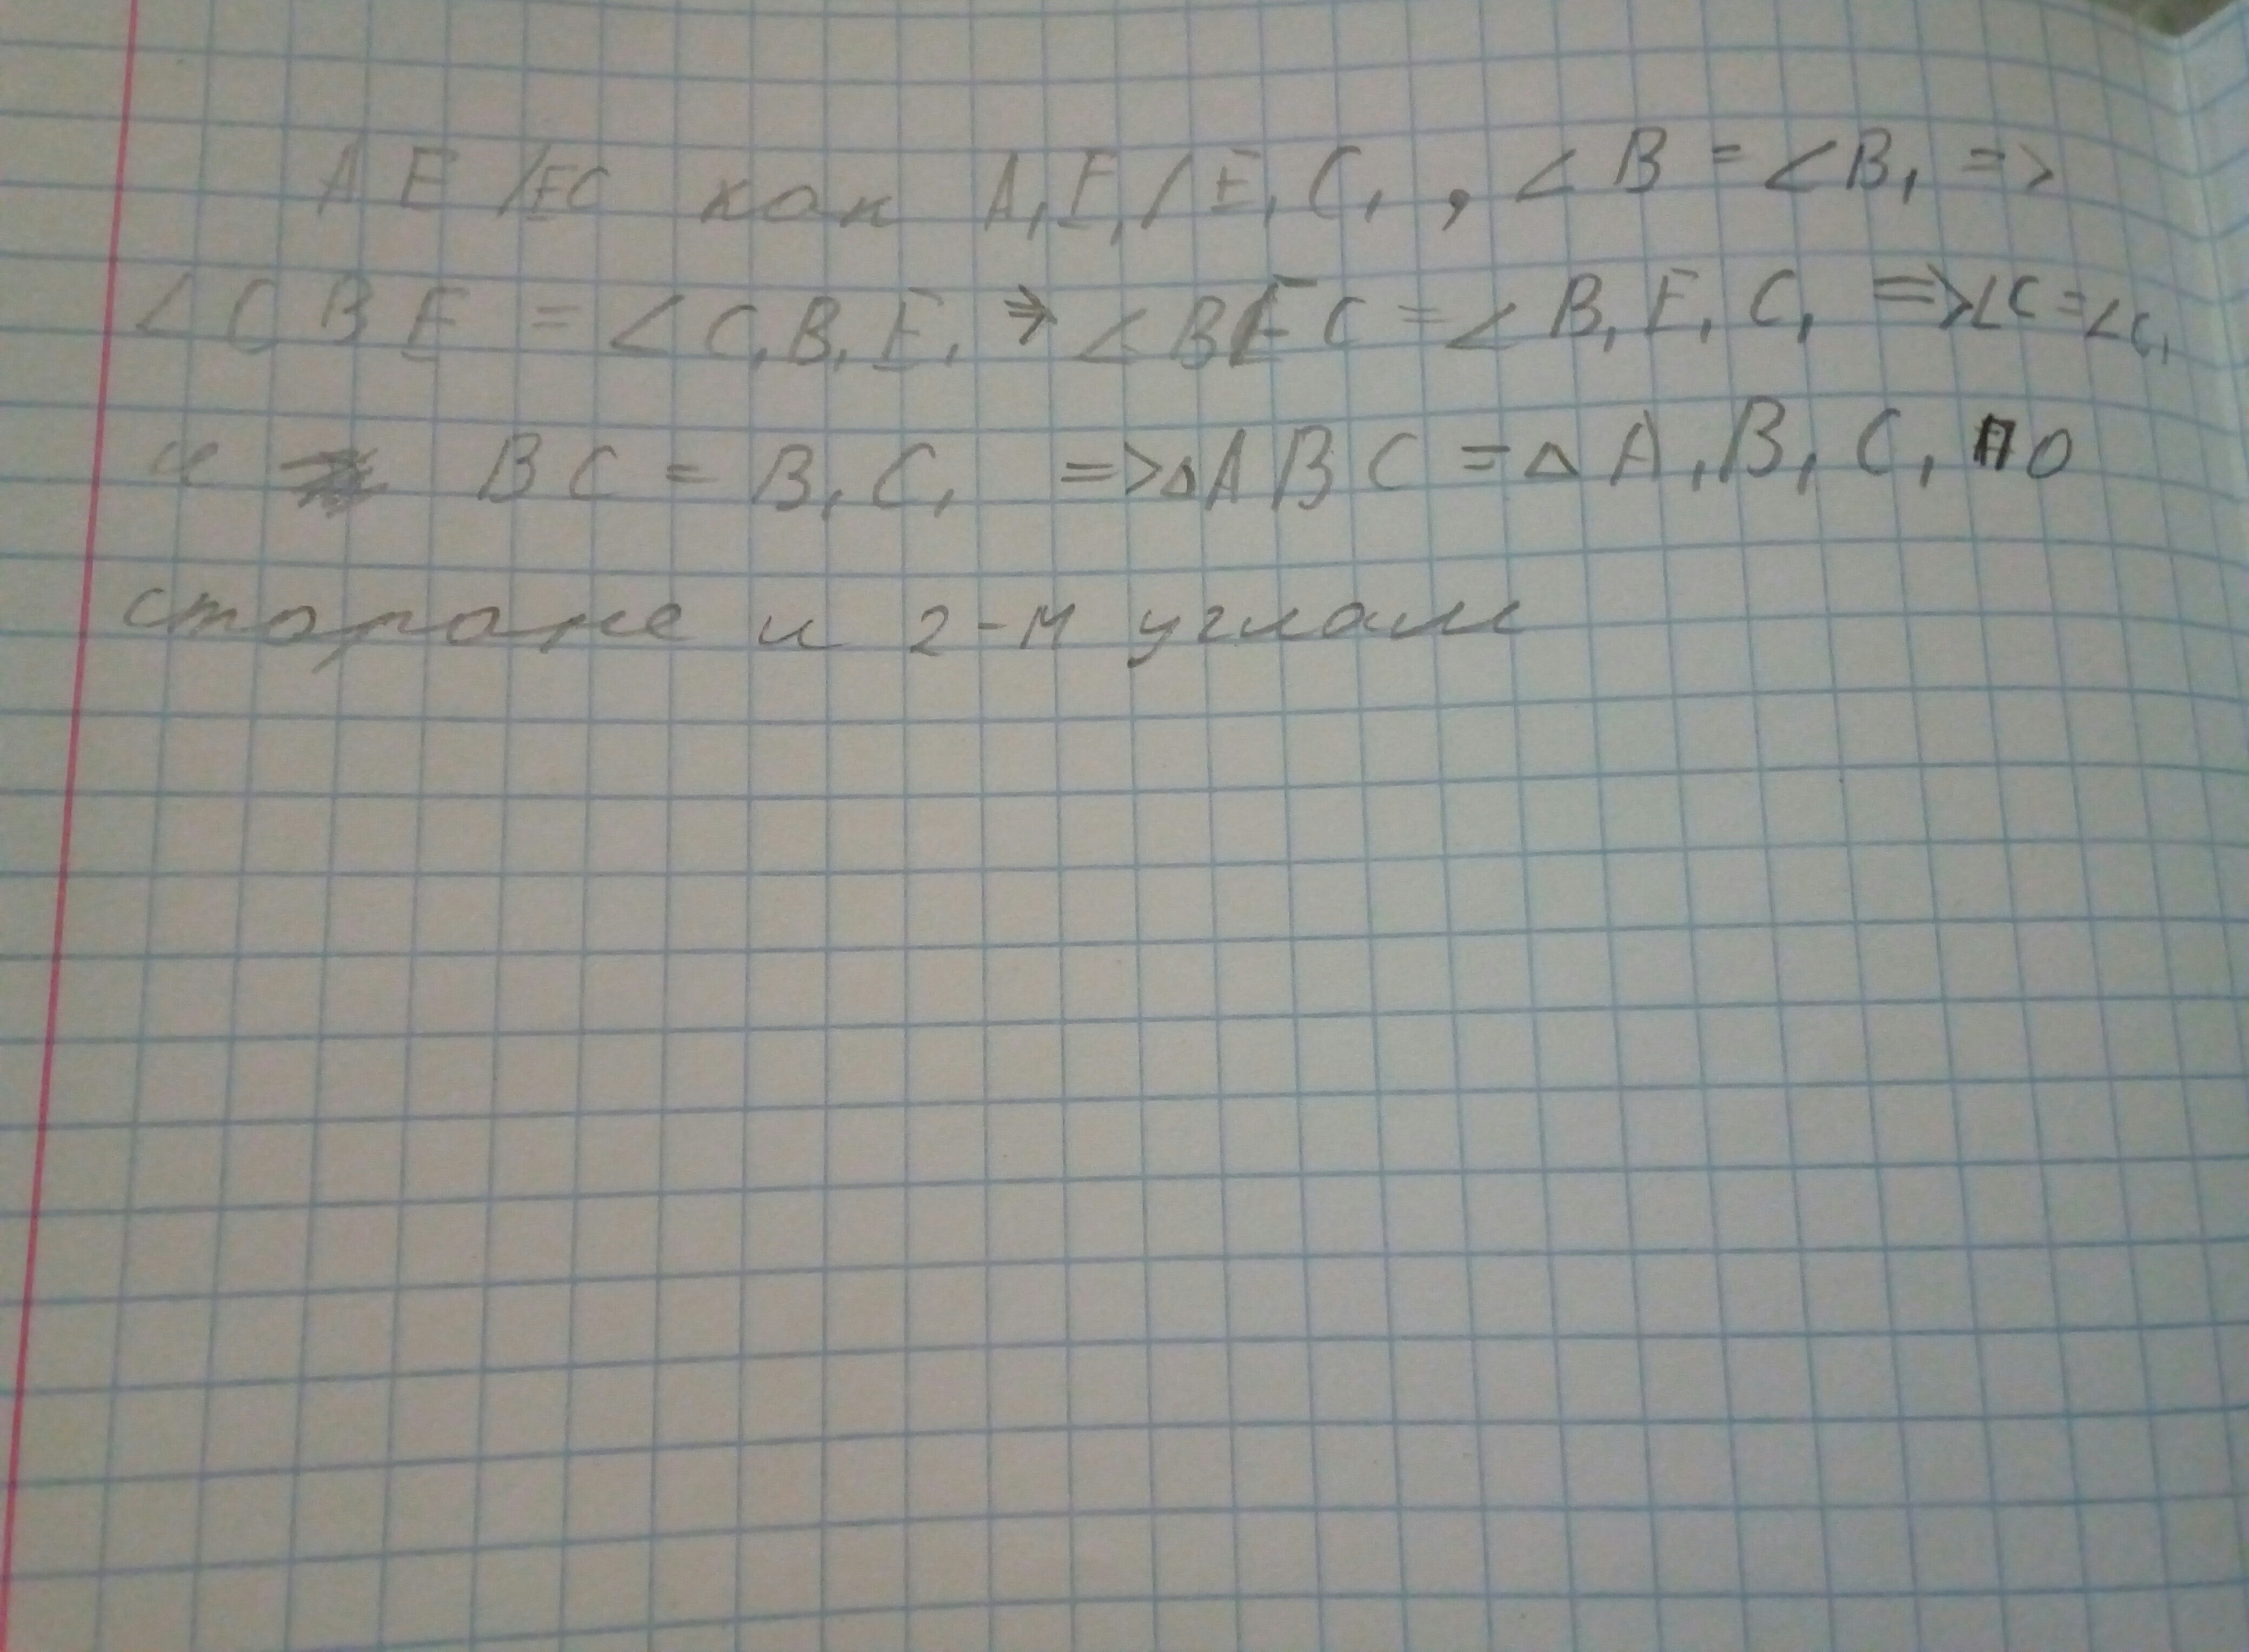 AE/EC как A₁E₁/E₁C₁, ∠B = ∠B₁ =>
∠CBE = ∠C₁B₁E₁ => ∠BEC = ∠B₁E₁C₁ => ∠C = ∠C₁
и BC = B₁C₁ => △ABC = △A₁B₁C₁ по
стороне и 2-м углам